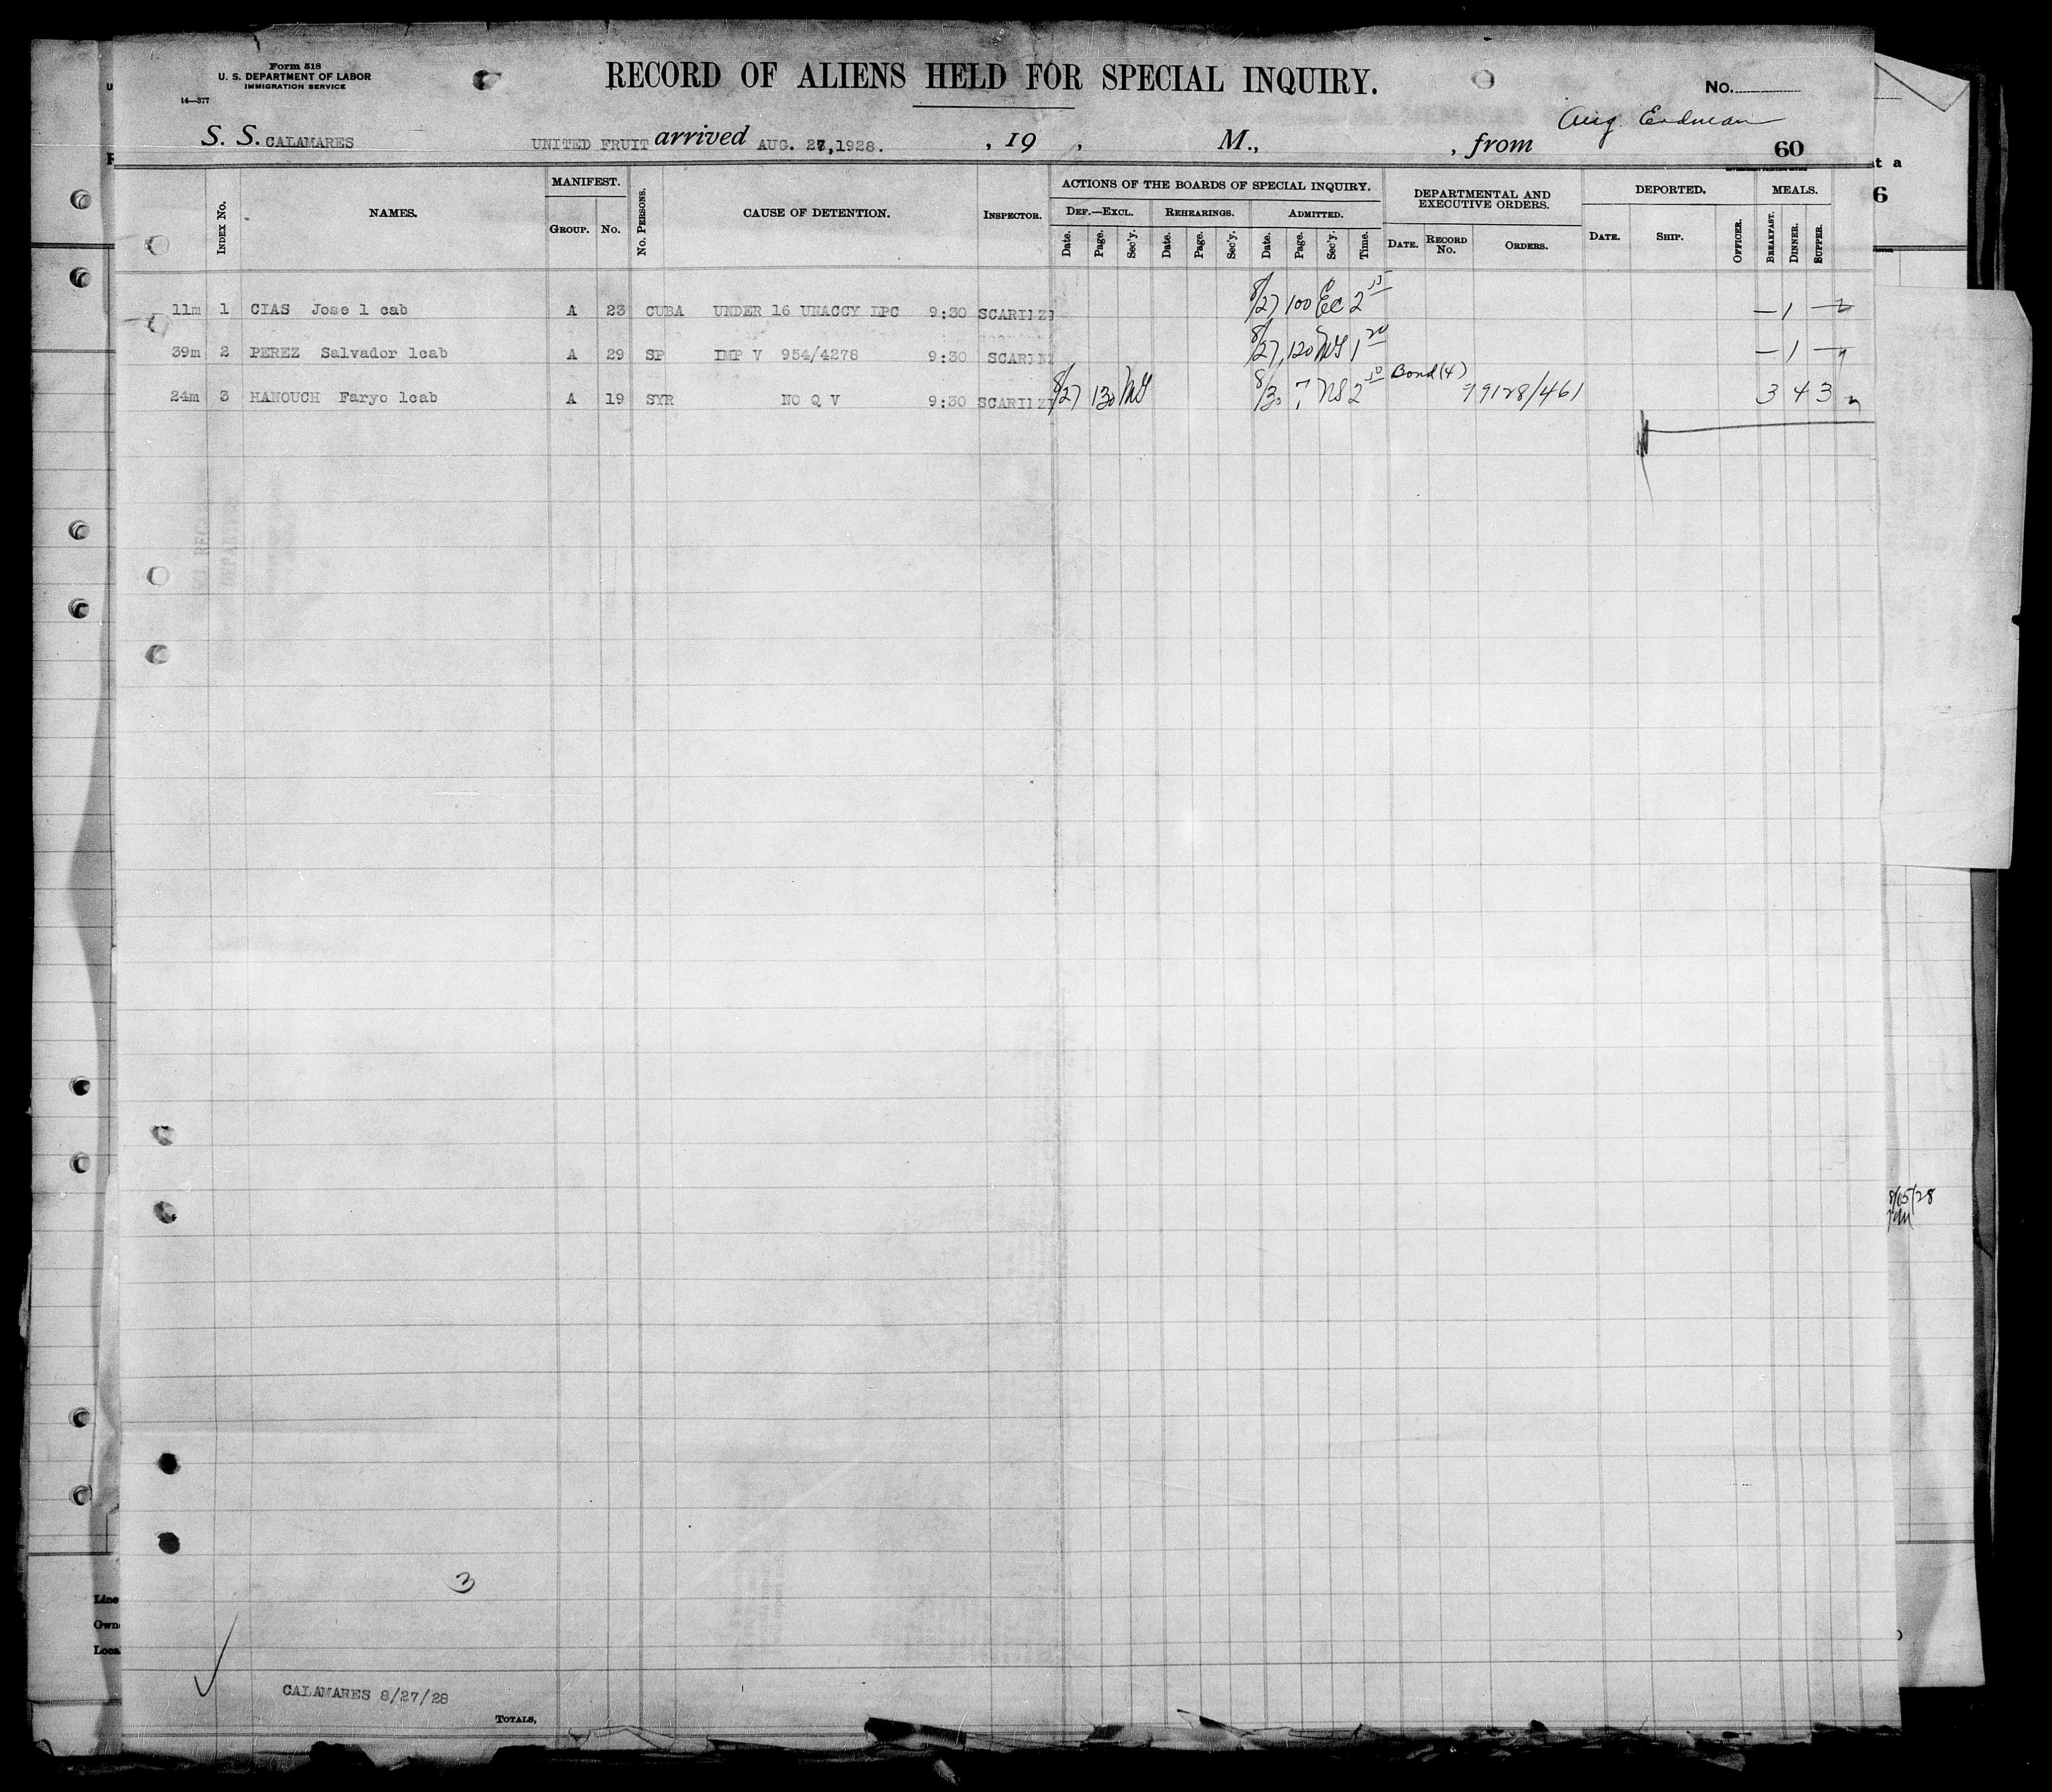 Form 518
U. S. DEPARTMENT OF LABOR
IMMIGRATION SERVICE
14—377
RECORD OF ALIENS HELD FOR SPECIAL INQUIRY.
No.
Aug. Erdman
S. S. CALAMARES UNITED FRUIT arrived AUG. 27,1928. , 19 , M., , from 60
INDEX No. NAMES. MANIFEST. GROUP. No. No. PERSONS. CAUSE OF DETENTION. INSPECTOR. ACTIONS OF THE BOARDS OF SPECIAL INQUIRY. DEPARTMENTAL AND EXECUTIVE ORDERS. DEPORTED. MEALS.
DEF.—EXCL. REHEARINGS. ADMITTED.
Date. Page. Sec'y. Date. Page. Sec'y. Date. Page. Sec'y. Time. DATE. RECORD No. ORDERS. DATE. SHIP. OFFICER. BREAKFAST. DINNER. SUPPER.
11m 1 CIAS Jose 1 cab A 23 CUBA UNDER 16 UNACCY LPC 9:30 8/27 100 EC 2 15 — 1 —
39m 2 PEREZ Salvador 1cab A 29 SP IMP V 954/4278 9:30 8/27 120 1 20 — 1 —
24m 3 HANOUCH Faryo 1cab A 19 SYR NO Q V 9:30 8/27 130 8/30 7 NS 2 10 Bond (4) 99128/461 3 4 3
3
CALAMARES 8/27/28
TOTALS,
t a
6
8/15/28
Line
Own
Loca